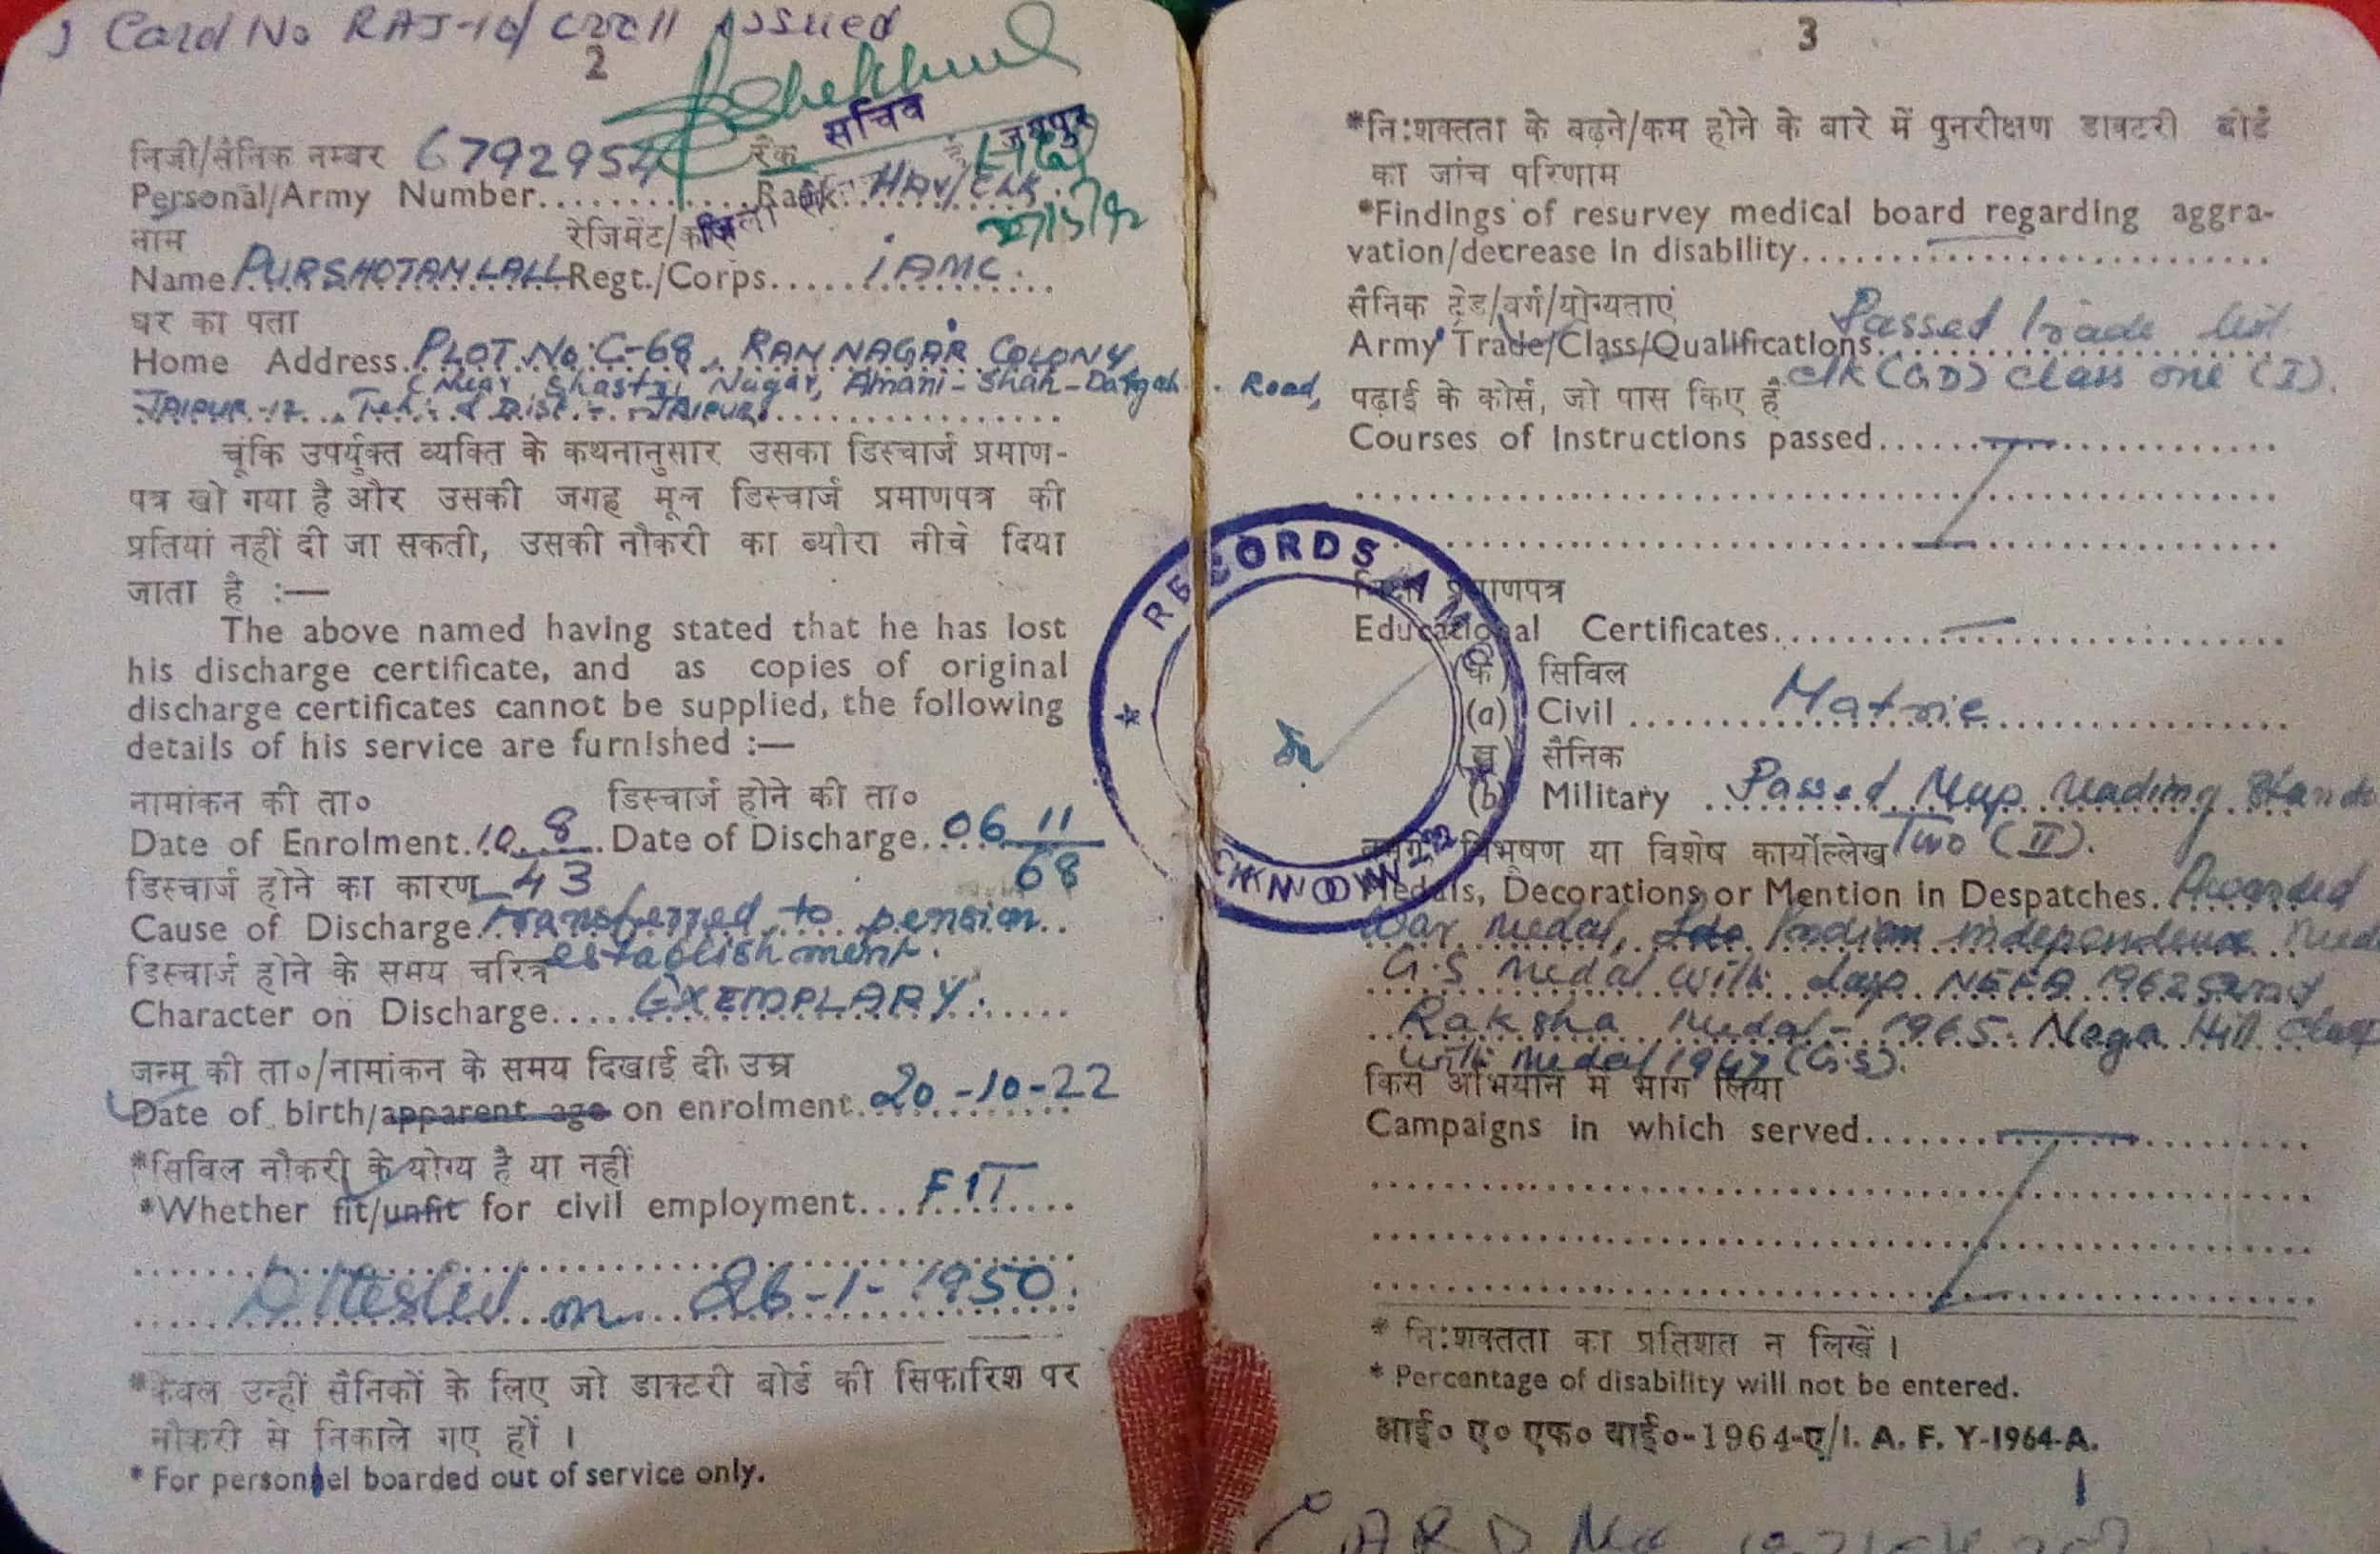 Card No RAJ-10/ issued
2
सचिव
जयपुर
निजी/सैनिक नम्बर 6792954 रैंक
Personal/Army Number............Rank HAV/CLK
नाम रेजिमेंट/कोर
Name PURSHOTAM LALL Regt./Corps......IAMC.
घर का पता
Home Address. PLOT No. C-68, RAM NAGAR COLONY
(Near Shastri Nagar, Amani-Shah-Dargah Road,
JAIPUR-12. Teh. & Dist. - JAIPUR.
चूंकि उपर्युक्त व्यक्ति के कथनानुसार उसका डिस्चार्ज प्रमाण-
पत्र खो गया है और उसकी जगह मूल डिस्चार्ज प्रमाणपत्र की
प्रतियां नहीं दी जा सकती, उसकी नौकरी का ब्यौरा नीचे दिया
जाता है :—
The above named having stated that he has lost
his discharge certificate, and as copies of original
discharge certificates cannot be supplied, the following
details of his service are furnished :—
नामांकन की ता० डिस्चार्ज होने की ता०
Date of Enrolment. 10 8 Date of Discharge. 06 11
डिस्चार्ज होने का कारण 43 68
Cause of Discharge. transferred to pension
establishment.
डिस्चार्ज होने के समय चरित्र
Character on Discharge.... EXEMPLARY.
जन्म की ता०/नामांकन के समय दिखाई दी उम्र
Date of birth/apparent age on enrolment. 20-10-22
*सिविल नौकरी के योग्य है या नहीं
*Whether fit/unfit for civil employment... FIT
Attested on 26-1-1950.
*केवल उन्हीं सैनिकों के लिए जो डाक्टरी बोर्ड की सिफारिश पर
नौकरी से निकाले गए हों ।
* For personnel boarded out of service only.
RECORDS AMC
LUCKNOW-2
3
*नि:शक्तता के बढ़ने/कम होने के बारे में पुनरीक्षण डाक्टरी बोर्ड
का जांच परिणाम
*Findings of resurvey medical board regarding aggra-
vation/decrease in disability..............................
सैनिक ट्रेड/वर्ग/योग्यताएं
Army Trade/Class/Qualifications. Passed trade test
clk (GD) class one (I).
पढ़ाई के कोर्स, जो पास किए हैं
Courses of Instructions passed..........................
शिक्षा प्रमाणपत्र
Educational Certificates..............................
(क) सिविल
(a) Civil ........ Matric
(ख) सैनिक
(b) Military ... Passed Map reading
Two (II).
विभूषण या विशेष कार्योल्लेख
Medals, Decorations or Mention in Despatches. Awarded
War medal, Indian independence
G.S medal with clasp NEFA 1962 and
Raksha Medal - 1965. Naga Hill
with medal 1947 (G.S).
किस अभियान में भाग लिया
Campaigns in which served..........................
* नि:शक्तता का प्रतिशत न लिखें ।
* Percentage of disability will not be entered.
आई० ए० एफ० वाई०-1964-ए/I. A. F. Y-1964-A.
CARD No